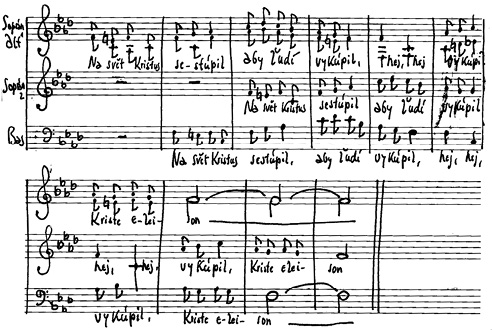 Soprán
Alt
Na svět Kristus se-stúpil aby ľudí vykúpil, hej, hej vykúpil
Soprán 2
Na svět Kristus sestúpil aby ľudí vykúpil
Bas
Na svět Kristus sestúpil, aby ľudí vykúpil, hej, hej,
Kriste e-lei- son
hej, hej, vykúpil, Kriste elei- son
vykúpil, Kriste e-lei- son